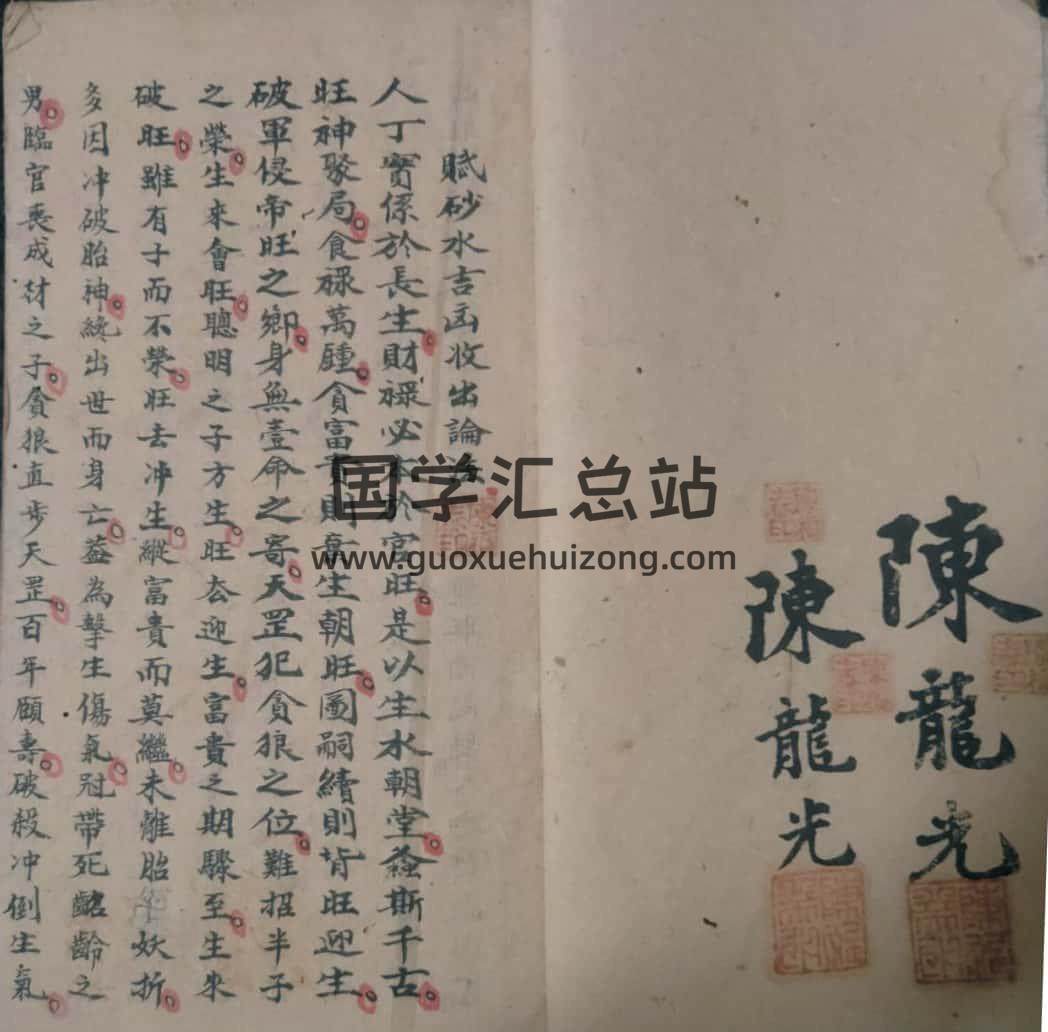 陳龍光
陳龍光
賦砂水吉凶收出論
人丁實係於長生財祿必 於官旺是以生水朝堂螽斯千古
旺神聚局食祿萬鍾貪富 則 生朝旺圖嗣續則背旺迎生
破軍侵帝旺之鄉身無壹命之寄天罡犯貪狼之位難招半子
之榮生來會旺聰明之子方生旺去迎生富貴之期驟至生來
破旺雖有子而不榮旺去冲生縱富貴而莫繼未離胎 妖折
多因冲破胎神纔出世而身亡蓋為擊生傷氣冠帶死齠齡之
男臨官喪成材之子貪狼直步天罡百年頋壽破殺冲倒生氣
国学汇总站
www.guoxuehuizong.com